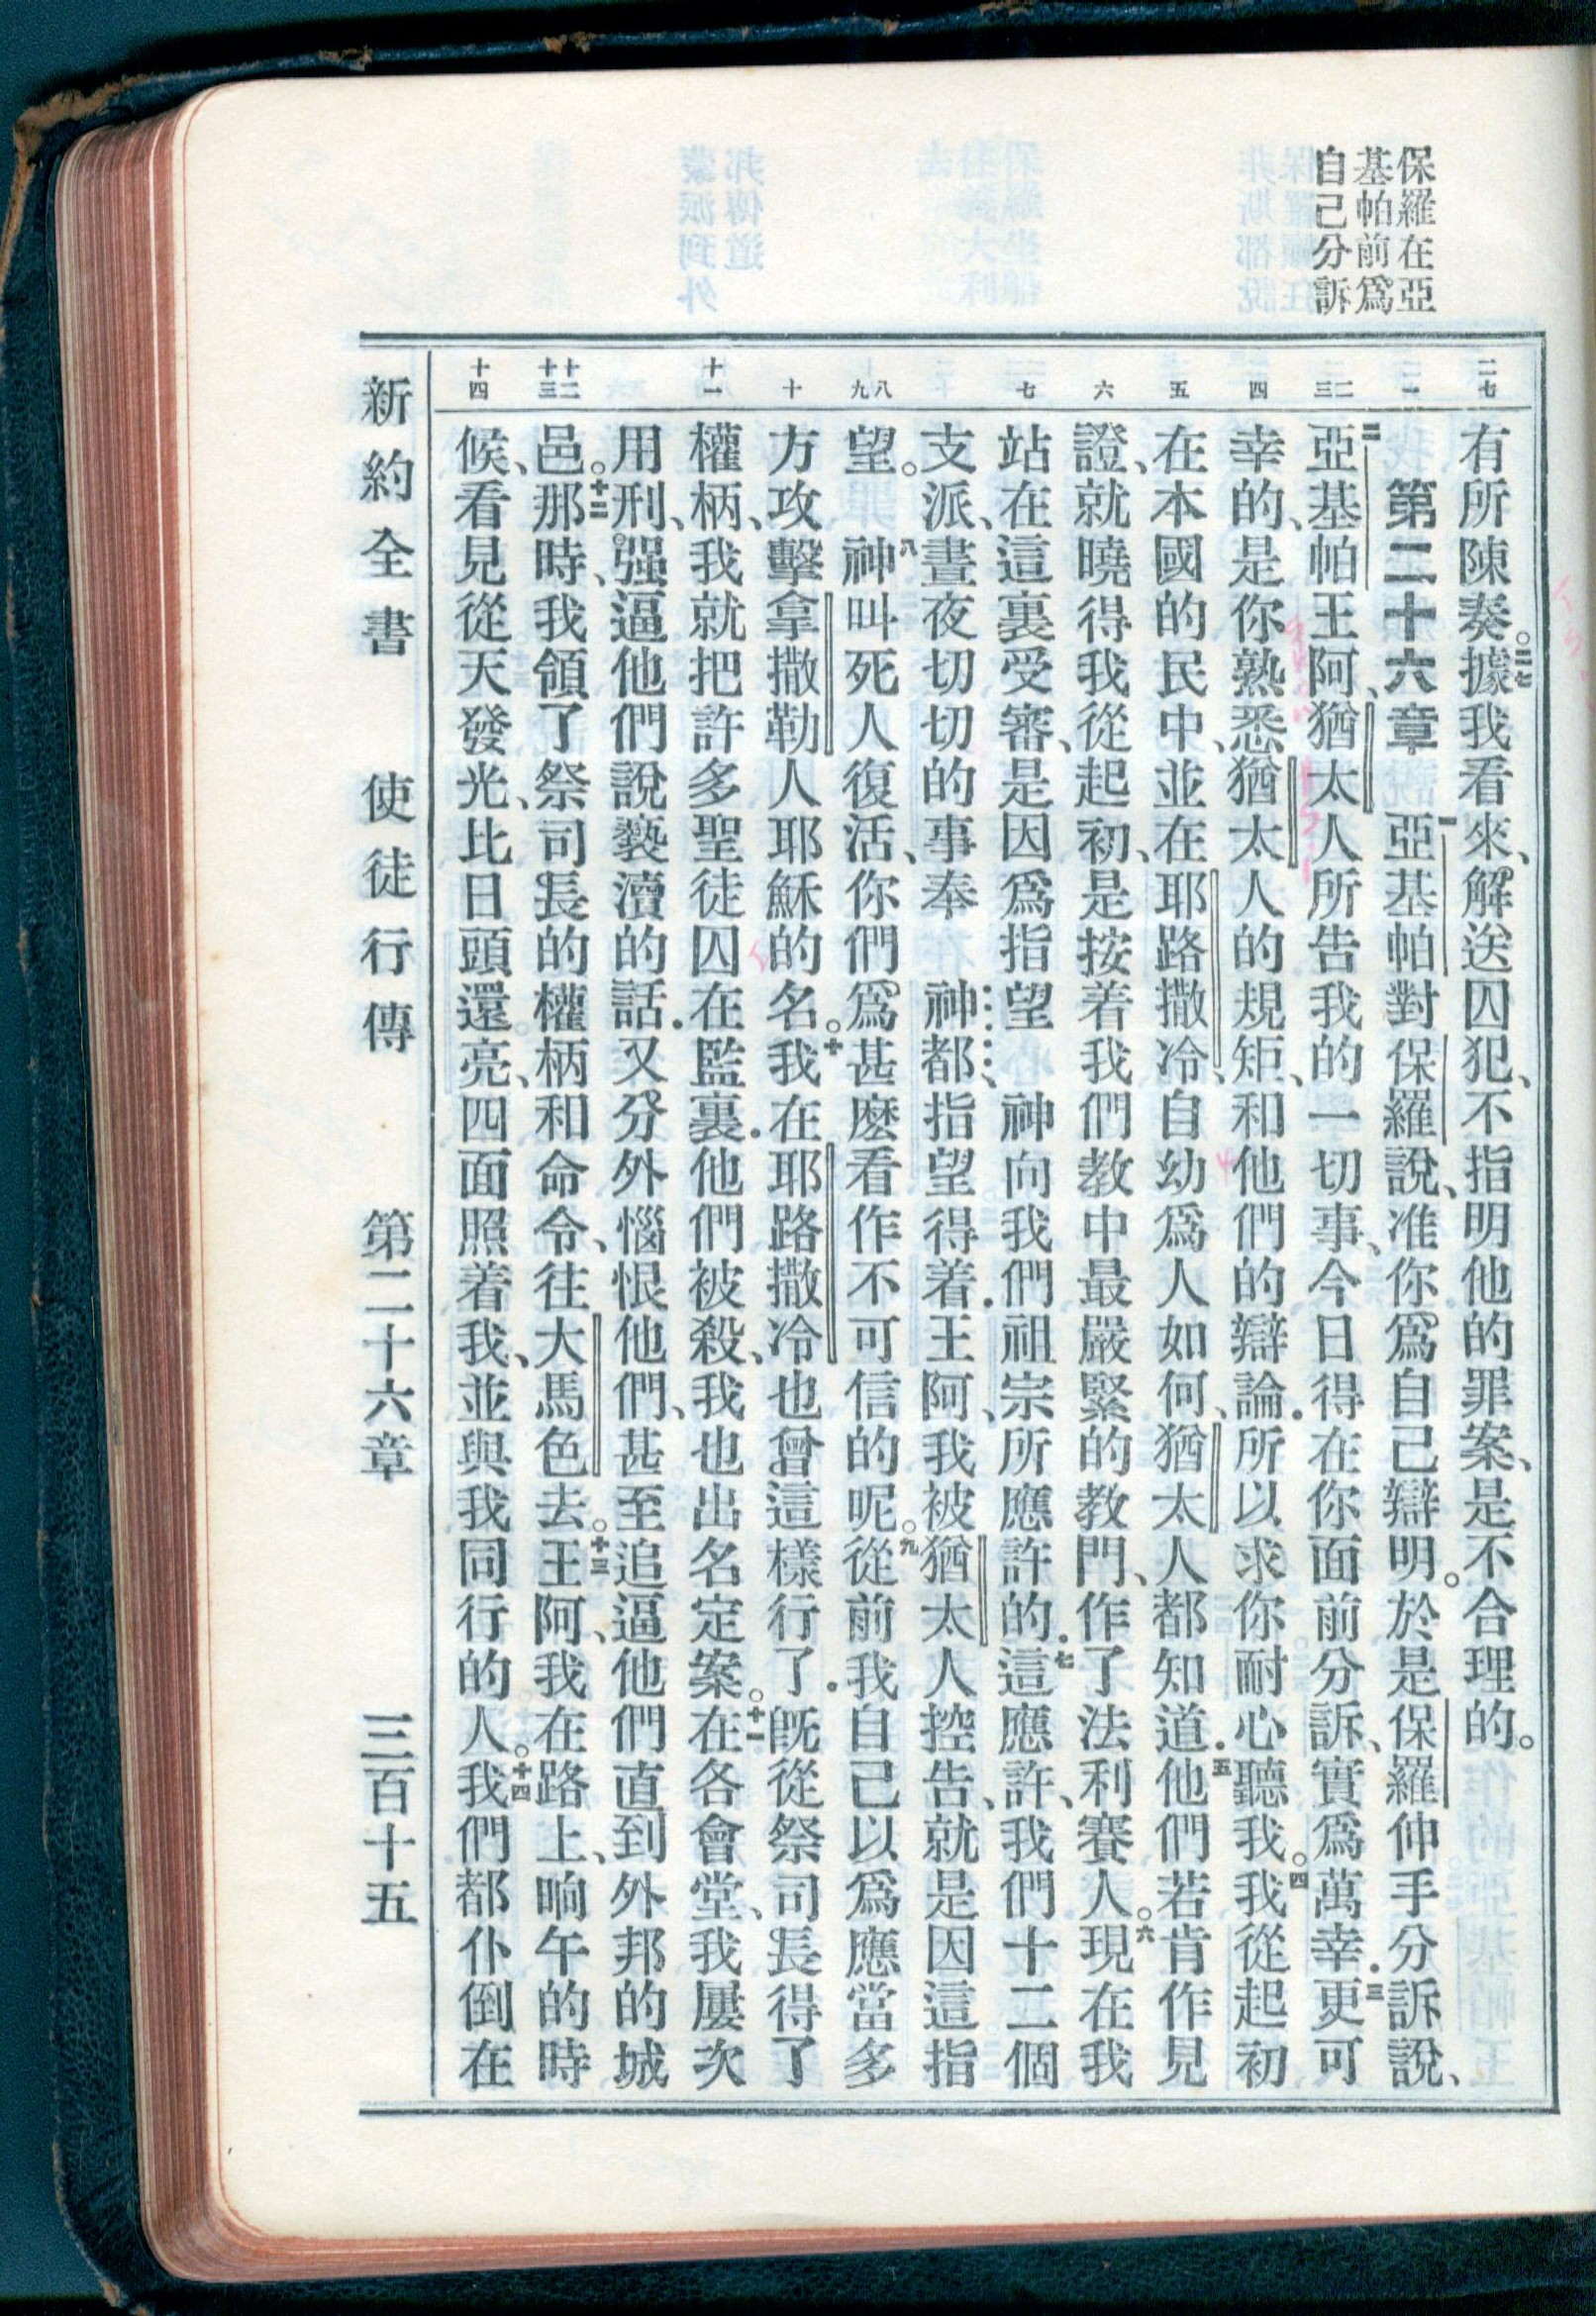 保羅在亞
基帕前爲
自己分訴
二七 一 二 三 四 五 六 七 八 九 十 十一 十二 十三 十四
有所陳奏。二七據我看來、解送囚犯、不指明他的罪案、是不合理的。
第二十六章 一亞基帕對保羅說、准你爲自己辯明。於是保羅伸手分訴說、
二亞基帕王阿、猶太人所告我的一切事、今日得在你面前分訴、實爲萬幸．三更可
幸的、是你熟悉猶太人的規矩、和他們的辯論．所以求你耐心聽我。四我從起初
在本國的民中、並在耶路撒冷、自幼爲人如何、猶太人都知道．五他們若肯作見
證、就曉得我從起初、是按着我們教中最嚴緊的教門、作了法利賽人。六現在我
站在這裏受審、是因爲指望 神向我們祖宗所應許的．七這應許、我們十二個
支派、晝夜切切的事奉 神、都指望得着．王阿、我被猶太人控告、就是因這指
望。八神叫死人復活、你們爲甚麽看作不可信的呢。九從前我自己以爲應當多
方攻擊拿撒勒人耶穌的名。十我在耶路撒冷也曾這樣行了．旣從祭司長得了
權柄、我就把許多聖徒囚在監裏．他們被殺、我也出名定案。十一在各會堂、我屢次
用刑、强逼他們說褻瀆的話．又分外惱恨他們、甚至追逼他們直到外邦的城
邑。十二那時、我領了祭司長的權柄和命令、往大馬色去。十三王阿、我在路上、晌午的時
候、看見從天發光、比日頭還亮、四面照着我、並與我同行的人。十四我們都仆倒在
新約全書 使徒行傳 第二十六章 三百十五